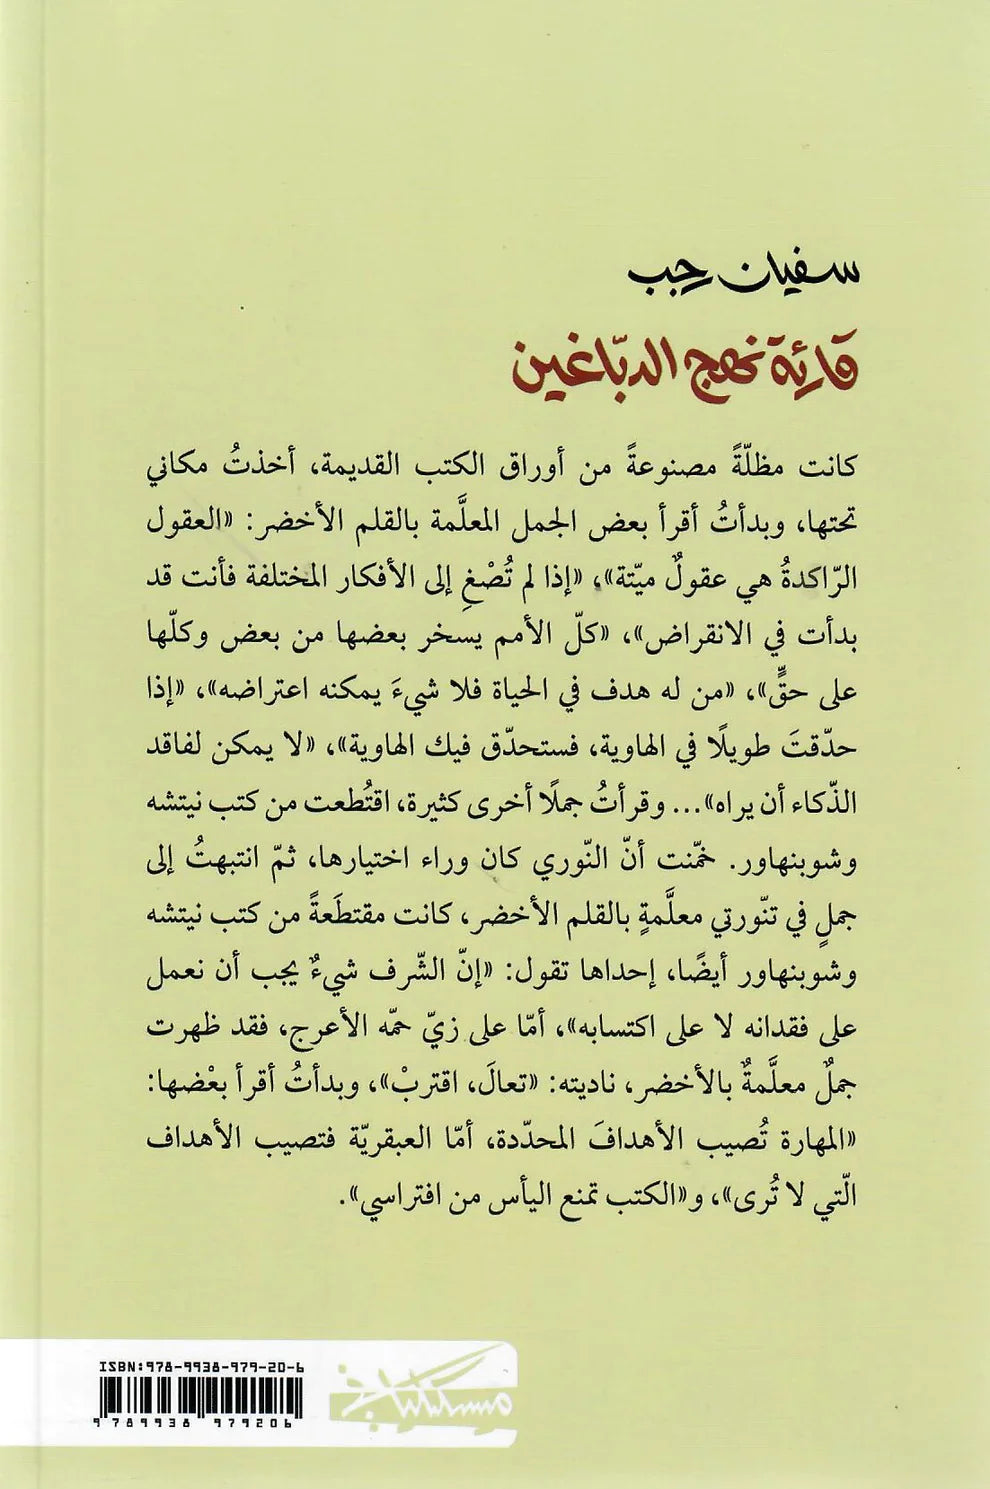 سفيان رجب
قارئة نهج الدبّاغين
كانت مظلّةً مصنوعةً من أوراق الكتب القديمة، أخذتُ مكاني
تحتها، وبدأتُ أقرأ بعض الجمل المعلَّمة بالقلم الأخضر: «العقول
الرّاكدةُ هي عقولٌ ميّتة»، «إذا لم تُصْغِ إلى الأفكار المختلفة فأنت قد
بدأت في الانقراض»، «كلّ الأمم يسخر بعضها من بعض وكلّها
على حقٍّ»، «من له هدف في الحياة فلا شيءَ يمكنه اعتراضه»، «إذا
حدّقتَ طويلًا في الهاوية، فستحدّق فيك الهاوية»، «لا يمكن لفاقد
الذّكاء أن يراه»... وقرأتُ جملًا أخرى كثيرة، اقتُطعت من كتب نيتشه
وشوبنهاور. خمّنت أنّ النّوري كان وراء اختيارها، ثمّ انتبهتُ إلى
جملٍ في تنّورتي معلَّمةٍ بالقلم الأخضر، كانت مقتطَعةً من كتب نيتشه
وشوبنهاور أيضًا، إحداها تقول: «إنّ الشّرف شيءٌ يجب أن نعمل
على فقدانه لا على اكتسابه»، أمّا على زيّ حمّه الأعرج، فقد ظهرت
جملٌ معلَّمةٌ بالأخضر، ناديته: «تعالَ، اقتربْ»، وبدأتُ أقرأ بعْضها:
«المهارة تُصيب الأهدافَ المحدّدة، أمّا العبقريّة فتصيب الأهداف
الّتي لا تُرى»، و«الكتب تمنع اليأس من افتراسي».
ISBN:978-9938-979-20-6
9 789938 979206
مسكيلياني